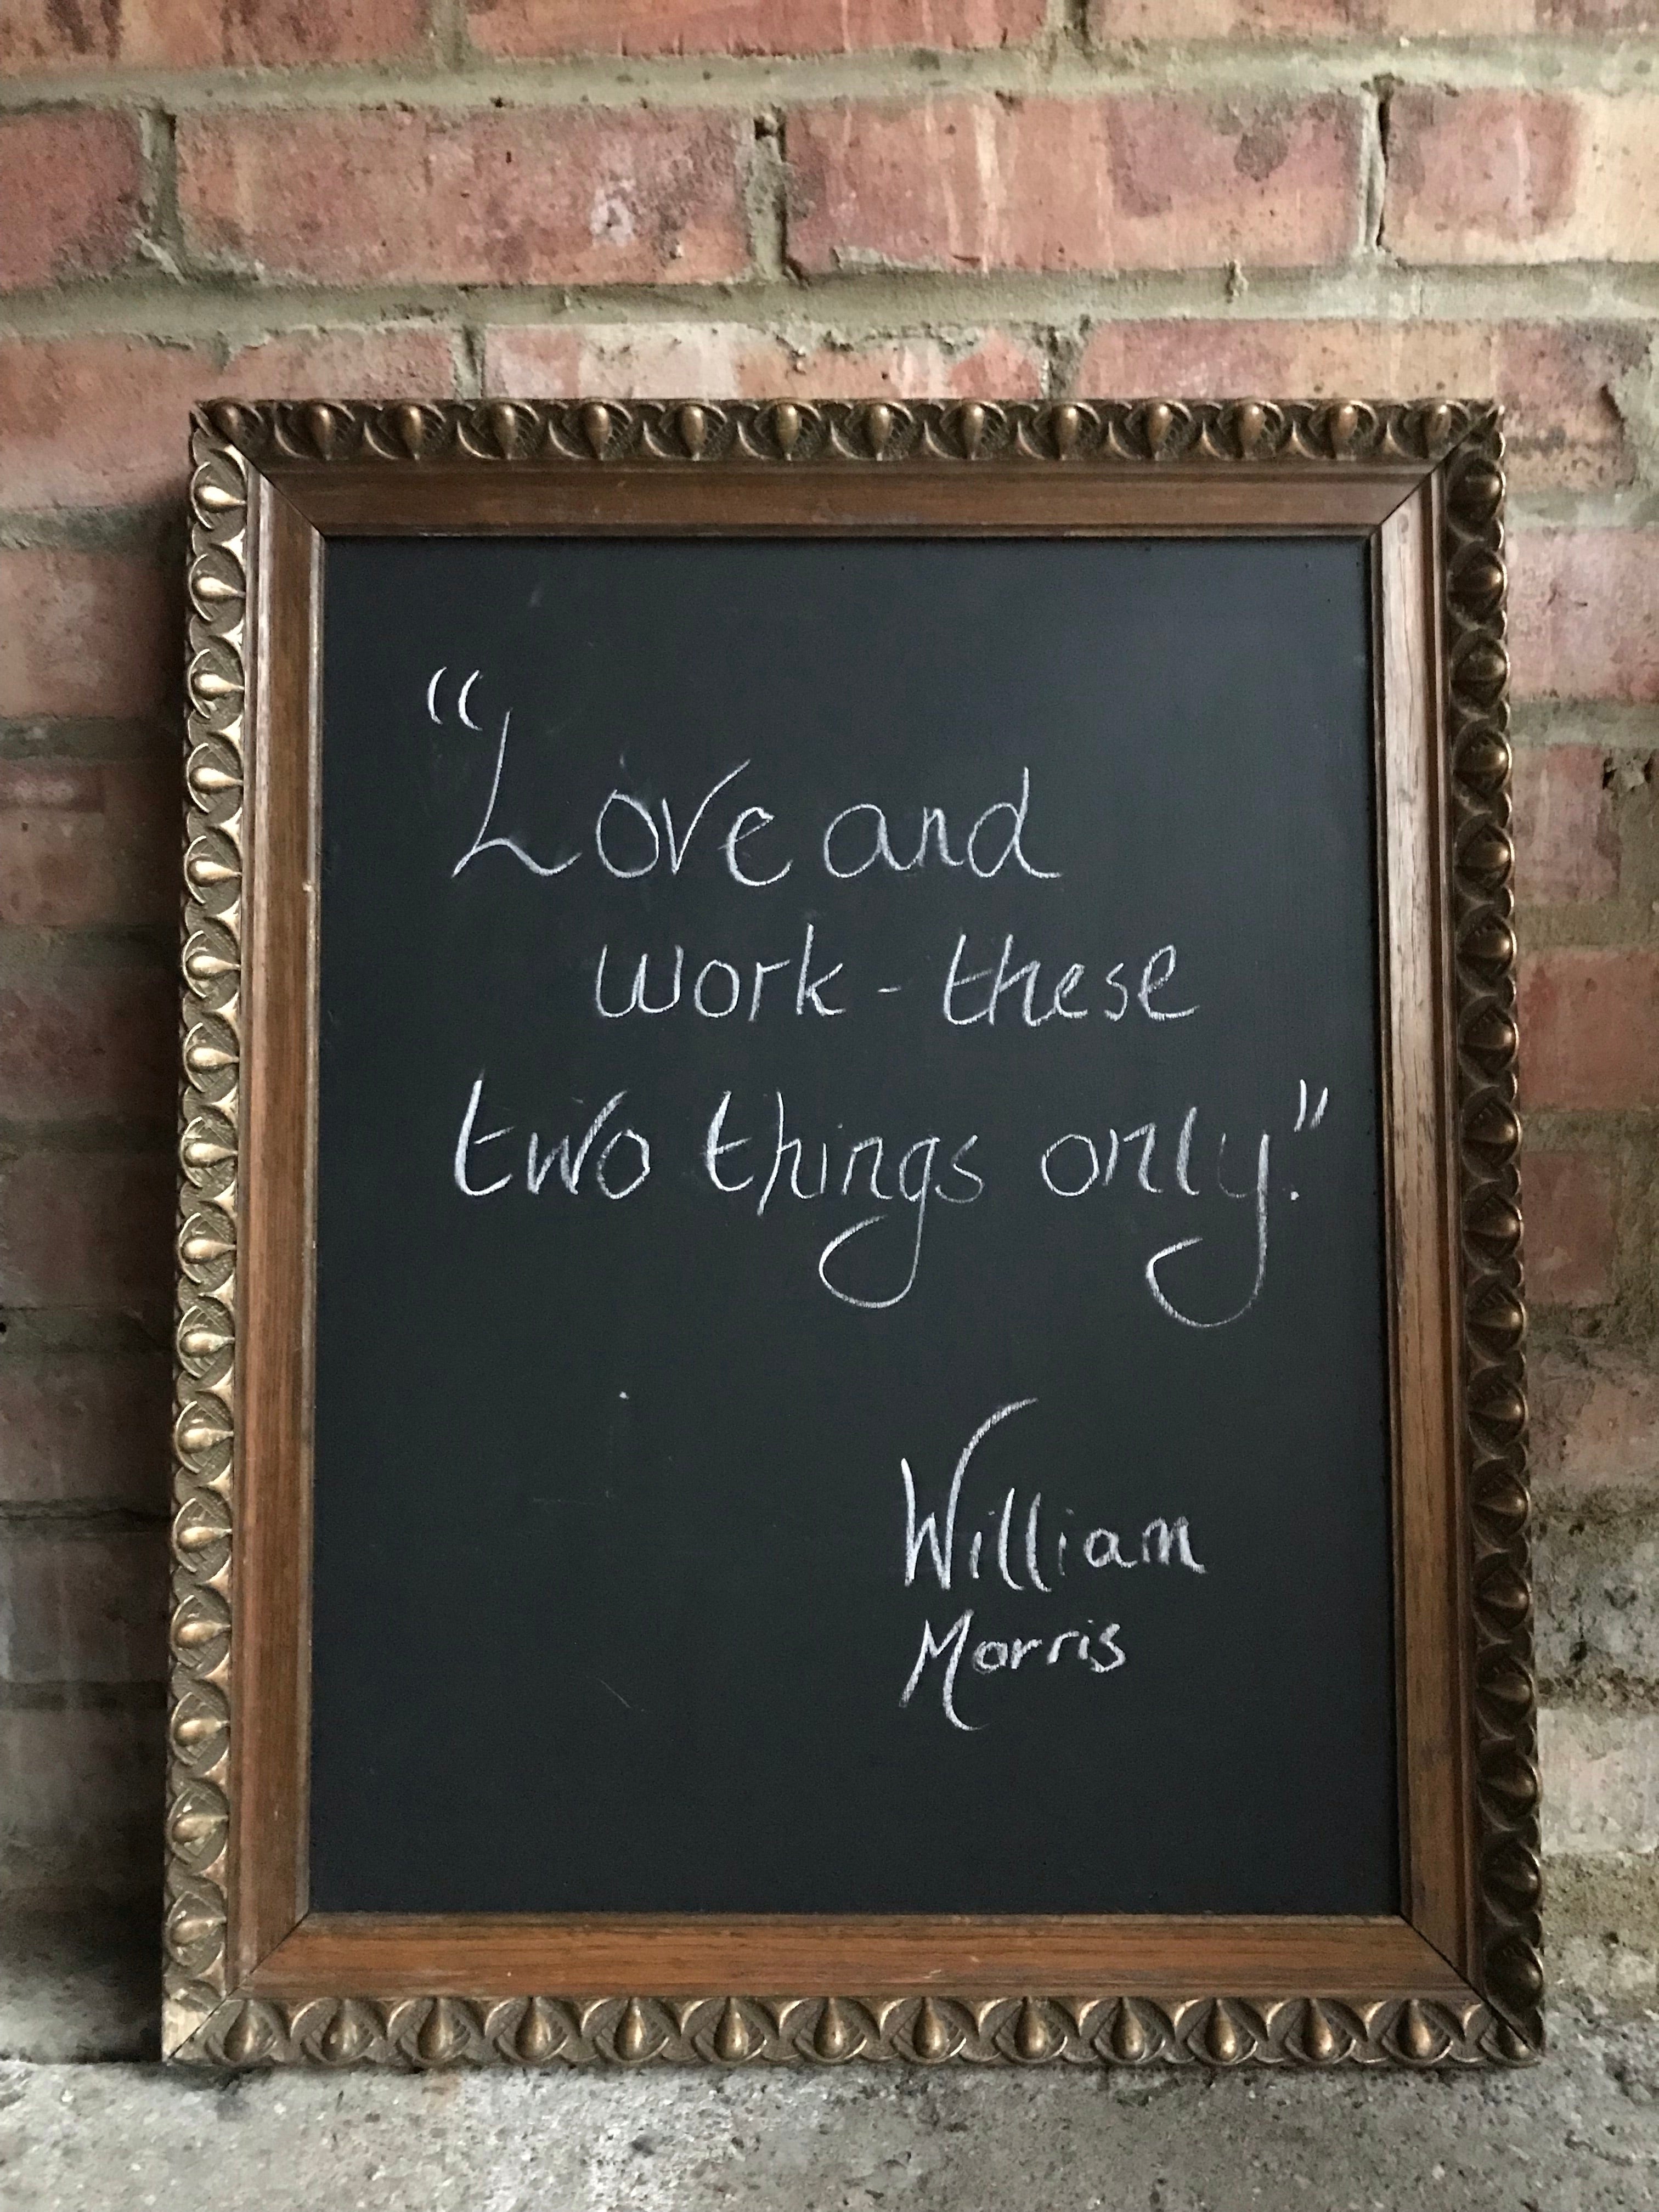 “Love and
work - these
two things only.”
William
Morris